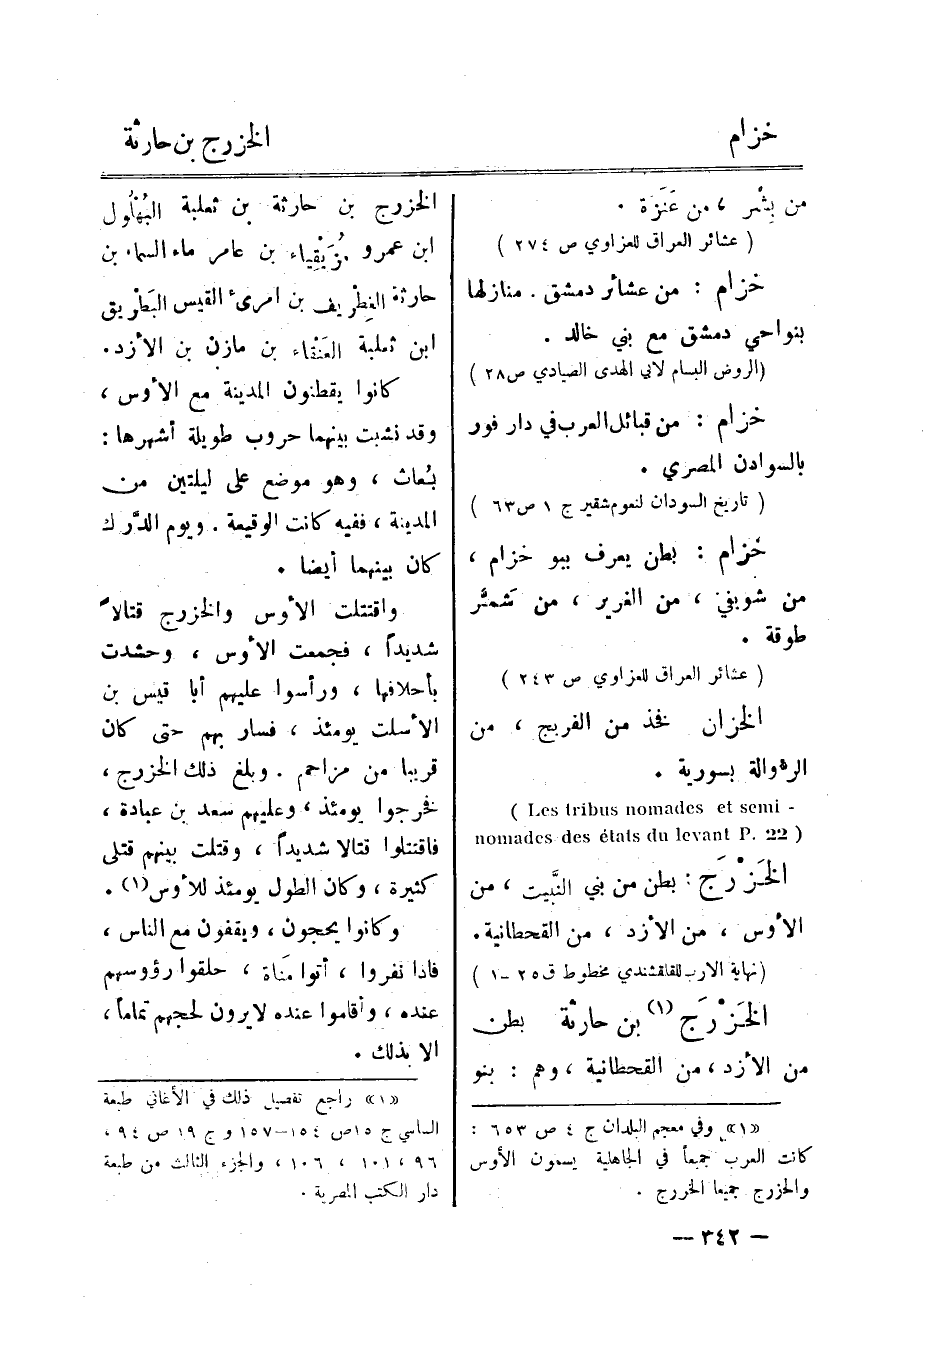 خزام
الخزرج بن حارثة
من بِشْر ، من عَنَزة .
( عشائر العراق للعزاوي ص ٢٧٤ )
خزام : من عشائر دمشق . منازلها
بنواحي دمشق مع بني خالد .
(الروض البسام لابي الهدى الصيادي ص٢٨ )
خزام : من قبائل العرب في دار فور
بالسوادن المصري .
( تاريخ السودان لنعوم شقير ج ١ ص٦٣ )
خزام : بطن يعرف ببو خزام ،
من شويفي ، من الغرير ، من شمَّر
طوقة .
( عشائر العراق للعزاوي ص ٢٤٣ )
الخزان فخذ من الفريج ، من
الروالة بسورية .
( Les tribus nomades et semi -
nomades des états du levant P. 22 )
الخَزْرَج : بطن من بني النَّبيت ، من
الأوس ، من الأزد ، من القحطانية .
(نهاية الارب للقلقشندي مخطوط ق٢٥ -١ )
الخَزْرَج (١) بن حارثة بطن
من الأزد ، من القحطانية ، وهم : بنو
«١» وفي معجم البلدان ج ٤ ص ٦٥٣ :
كانت العرب جميعاً في الجاهلية يسمون الأوس
والخزرج جميعا الخزرج .
الخزرج بن حارثة بن ثعلبة البُهْلُول
ابن عمرو مُزَيْقِياء بن عامر ماء السماء بن
حارثة الغِطْريف بن امرىء القيس البَطْريق
ابن ثعلبة العَنْقَاء بن مازن بن الأزد.
كانوا يقطنون المدينة مع الأوس ،
وقد نشبت بينهما حروب طويلة أشهرها :
بُعاث ، وهو موضع على ليلتين من
المدينة ، ففيه كانت الوقيعة . ويوم الدَّرك
كان بينهما أيضا .
واقتتلت الأوس والخزرج قتالاً
شديداً ، فجمعت الأوس ، وحشدت
بأحلافها ، ورأسوا عليهم أبا قيس بن
الأسلت يومئذ ، فسار بهم حتى كان
قريبا من مزاحم . وبلغ ذلك الخزرج ،
فخرجوا يومئذ ، وعليهم سعد بن عبادة ،
فاقتتلوا قتالا شديداً ، وقتلت بينهم قتلى
كثيرة ، وكان الطول يومئذ للأوس(١) .
وكانوا يحجون ، ويقفون مع الناس ،
فاذا نفروا ، أتوا مَناة ، حلقوا رؤوسهم
عنده ، وأقاموا عنده لا يرون لحجهم تماماً ،
الا بذلك .
«١» راجع تفصيل ذلك في الأغاني طبعة
الساسي ج ١٥ص ١٥٤–١٥٧ و ج ١٩ ص ٩٤ ،
٩٦ ، ١٠١ ، ١٠٦ ، والجزء الثالث من طبعة
دار الكتب المصرية .
— ٣٤٢ —